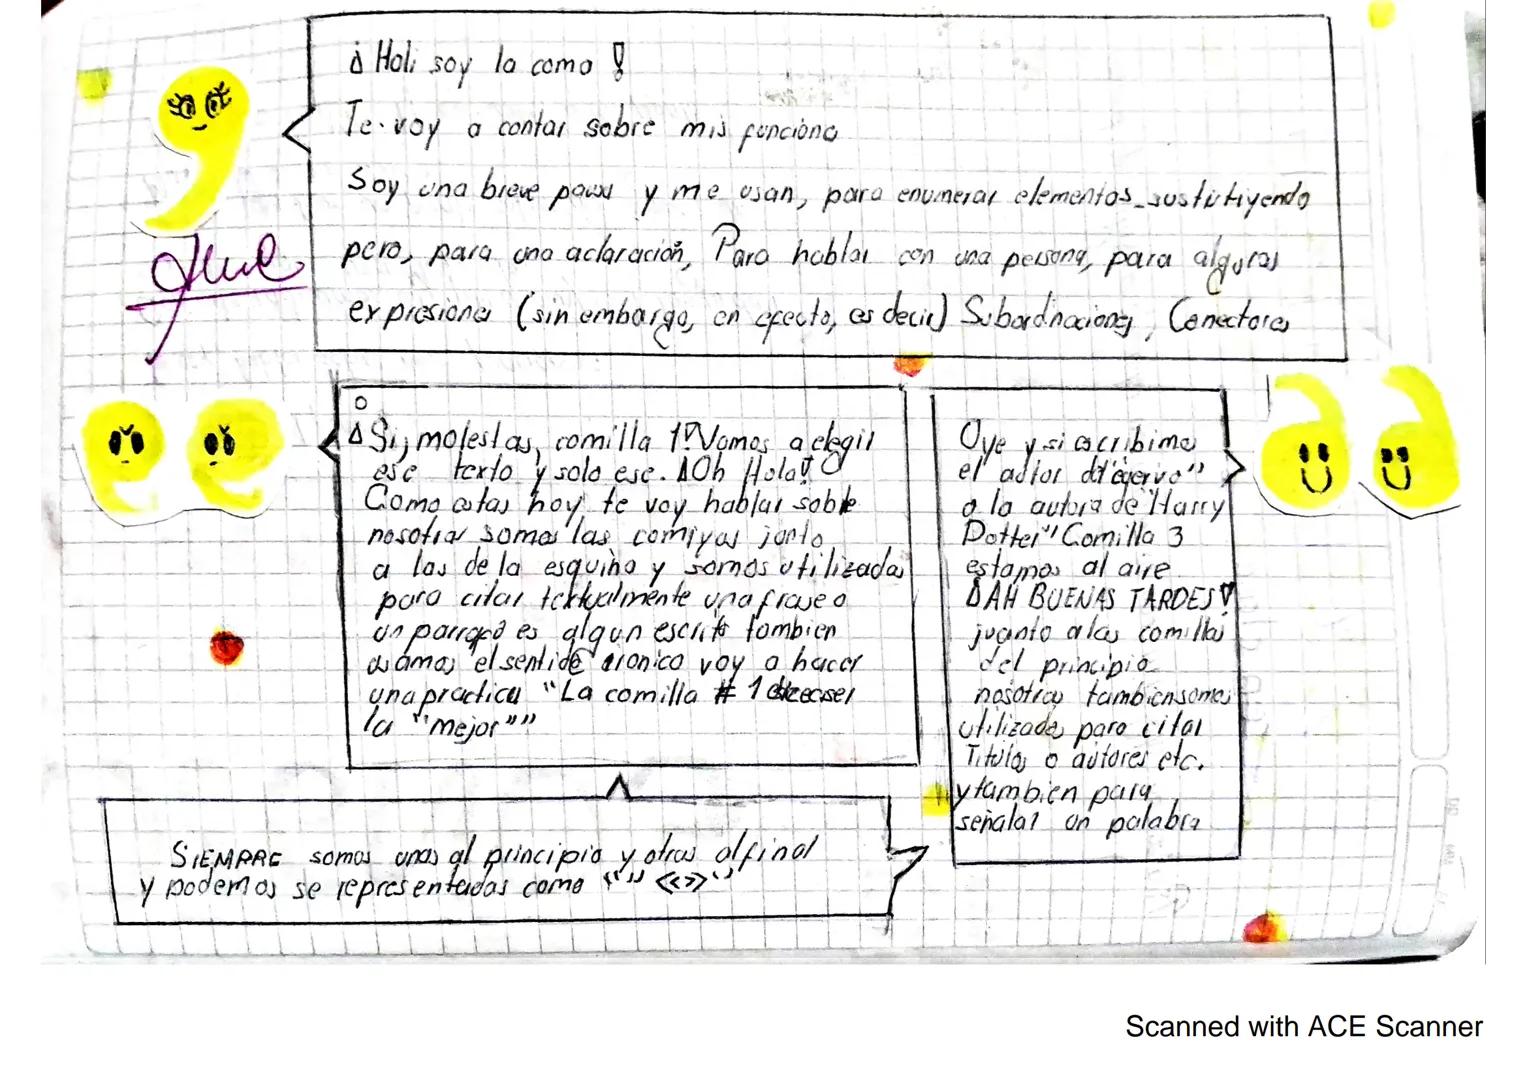 ¡Holi soy la coma!
Te voy a contar sobre mis funciona
Soy una breve pausa y me usan, para enumerar elementos sustutiyendo
pero, para una aclaración, Para hablar con una persona, para algunas
expresiones (sin embargo, en efecto, es decir) Subordnaciones, Conectores
¡Si, molestas, comilla 1! Vamos a elegir
ese texto y solo ese. ¡Oh Hola!
Como estas hoy te voy hablar sobre
nosotras somos las comiyas junto
a las de la esquina y somos utilizadas
para citar textualmente una frase o
un parrafo es algun escrito tombien
usamos el sentido ironico voy a hacer
una practica "La comilla # 1 ser
la "mejor""
Oye y si escribimos
el autor del
o la autora de "Harry
Potter" Comilla 3
estamos al aire
¡AH BUENAS TARDES!
juanto a las comillas
del principio
nosotras tambien somos
utilizadas para citar
Titulos o autores etc.
y tambien para
señalar un palabra
SIEMPRE somos unas al principio y otras al final
y podemos se representadas como "" «» ''
Scanned with ACE Scanner